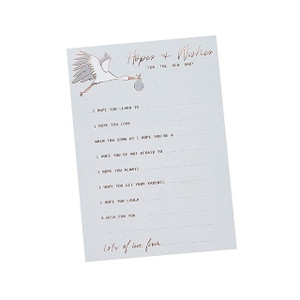 Hopes & Wishes
FOR THE NEW BABY
I HOPE YOU LEARN TO
I HOPE YOU LOVE
WHEN YOU GROW UP I HOPE YOU'RE A
I HOPE YOU'RE NOT AFRAID TO
I HOPE YOU ALWAYS
I HOPE YOU GET YOUR PARENTS'
I HOPE YOU LAUGH
A WISH FOR YOU
Lots of love from